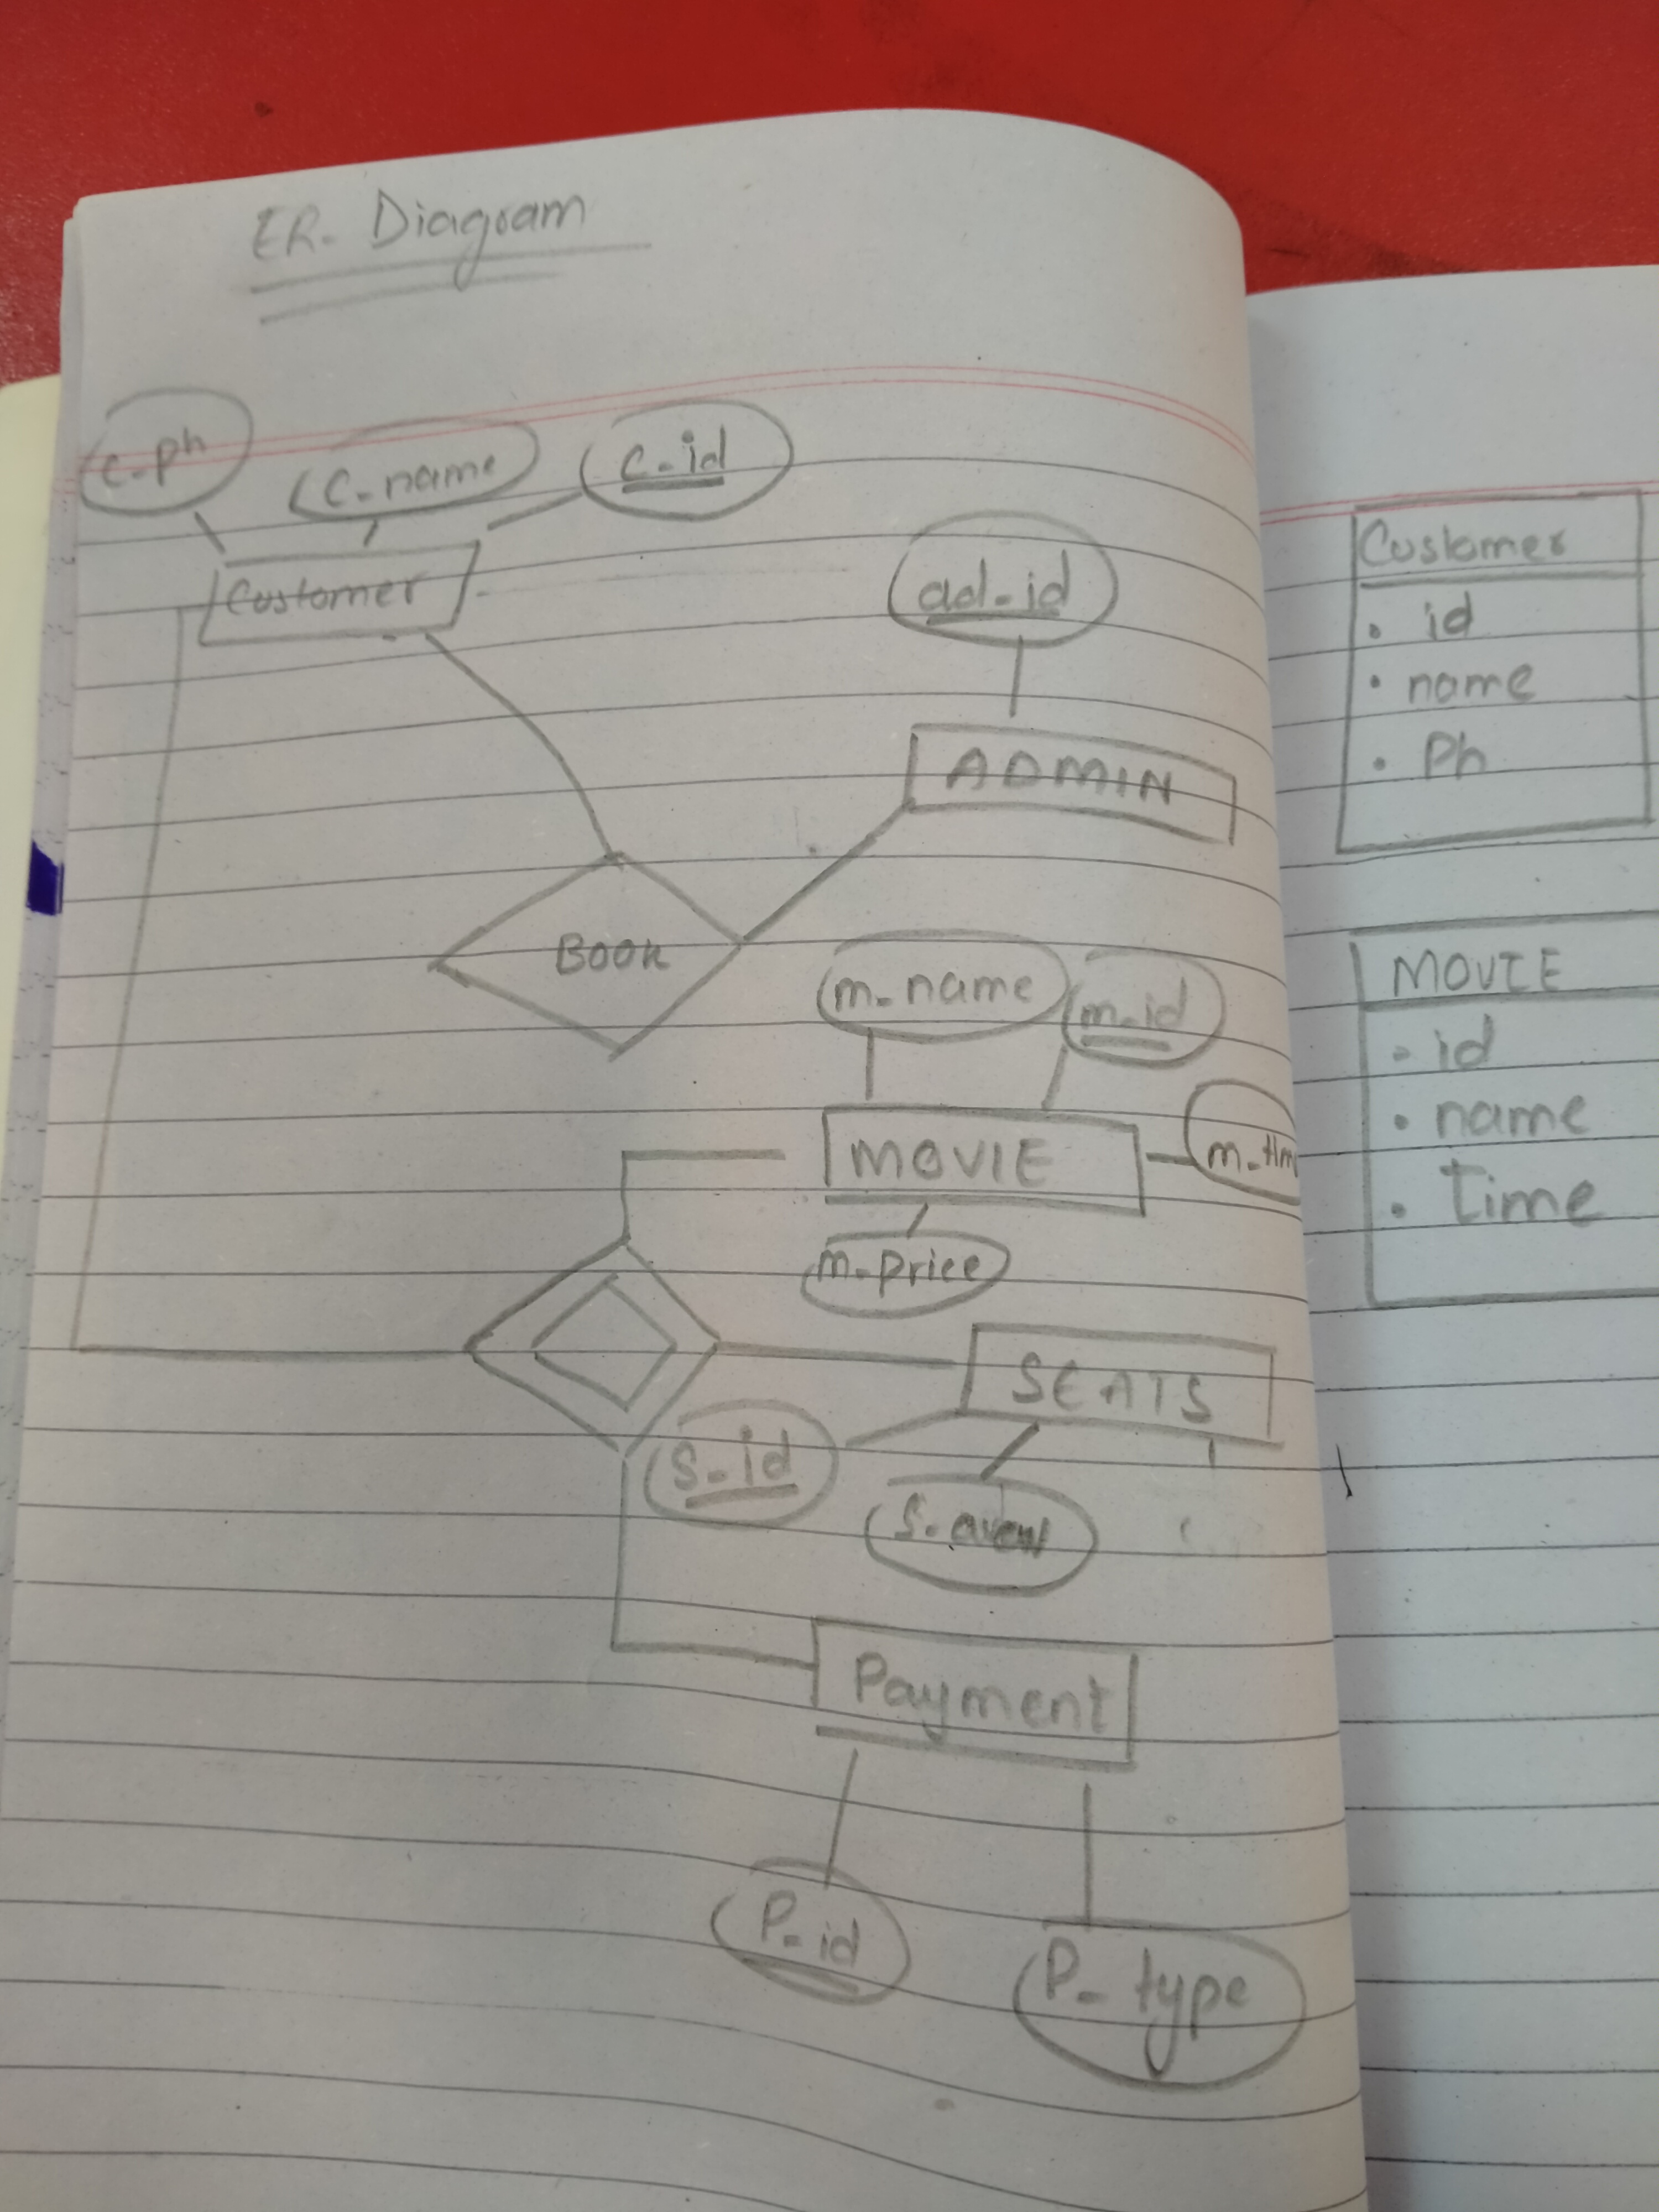 ER- Diagram
c-ph
c-name
c-id
Customer
ad-id
ADMIN
Book
m-name
m-id
MOVIE
m-tim
m-price
SEATS
s-id
Payment
P-id
P-type
Customer
• id
• name
• Ph
MOVIE
• id
• name
• time